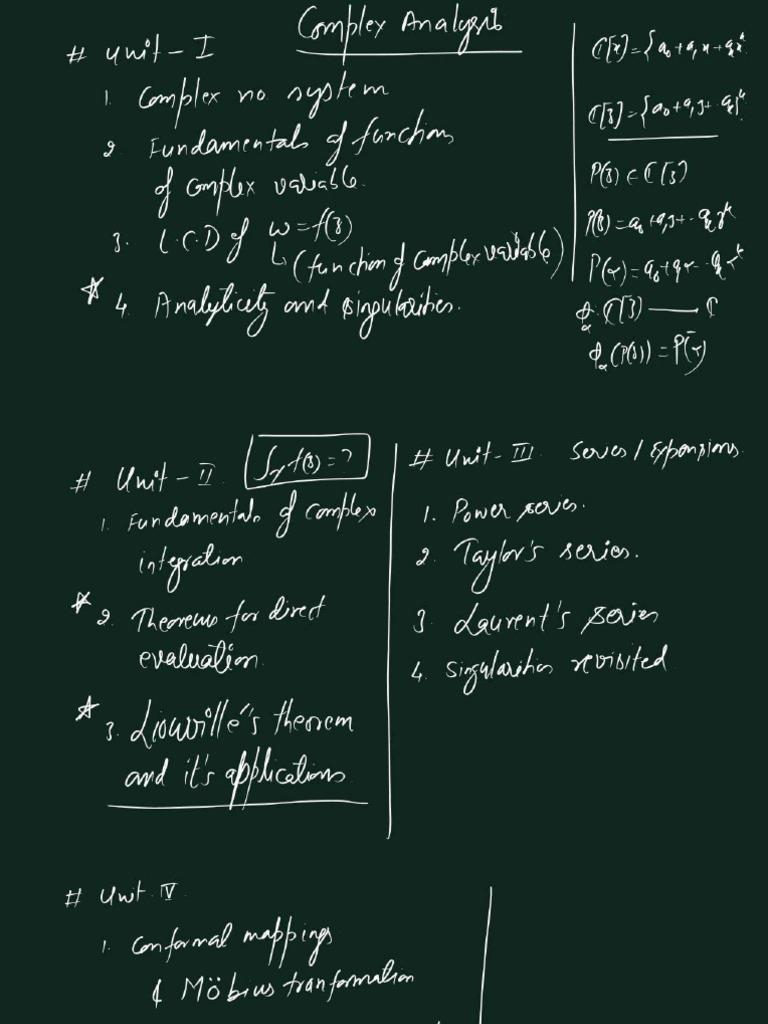 Complex Analysis
# Unit - I
1. Complex no. system
2. Fundamentals of function
of complex variable.
3. L.C.D of w=f(z)
(function of complex variable)
☆ 4. Analyticity and singularities.
ℂ[x]={a₀+a₁x+
ℂ[z]={a₀+a₁z+
P(z)∈ℂ[z]
P(z)=a₀+a₁z+
P(α)=a₀+
ℂ[z] — ℂ
ϕ_α(P(z))=P(α)
# Unit - II
∫_γ f(z)=?
1. Fundamentals of complex
integration
☆ 2. Theorems for direct
evaluation.
☆ 3. Liouville's theorem
and it's applications
# Unit - III Series / Expansions.
1. Power series.
2. Taylor's series.
3. Laurent's series
4. Singularities revisited
# Unit. IV
1. Conformal mappings
& Möbius tranformation